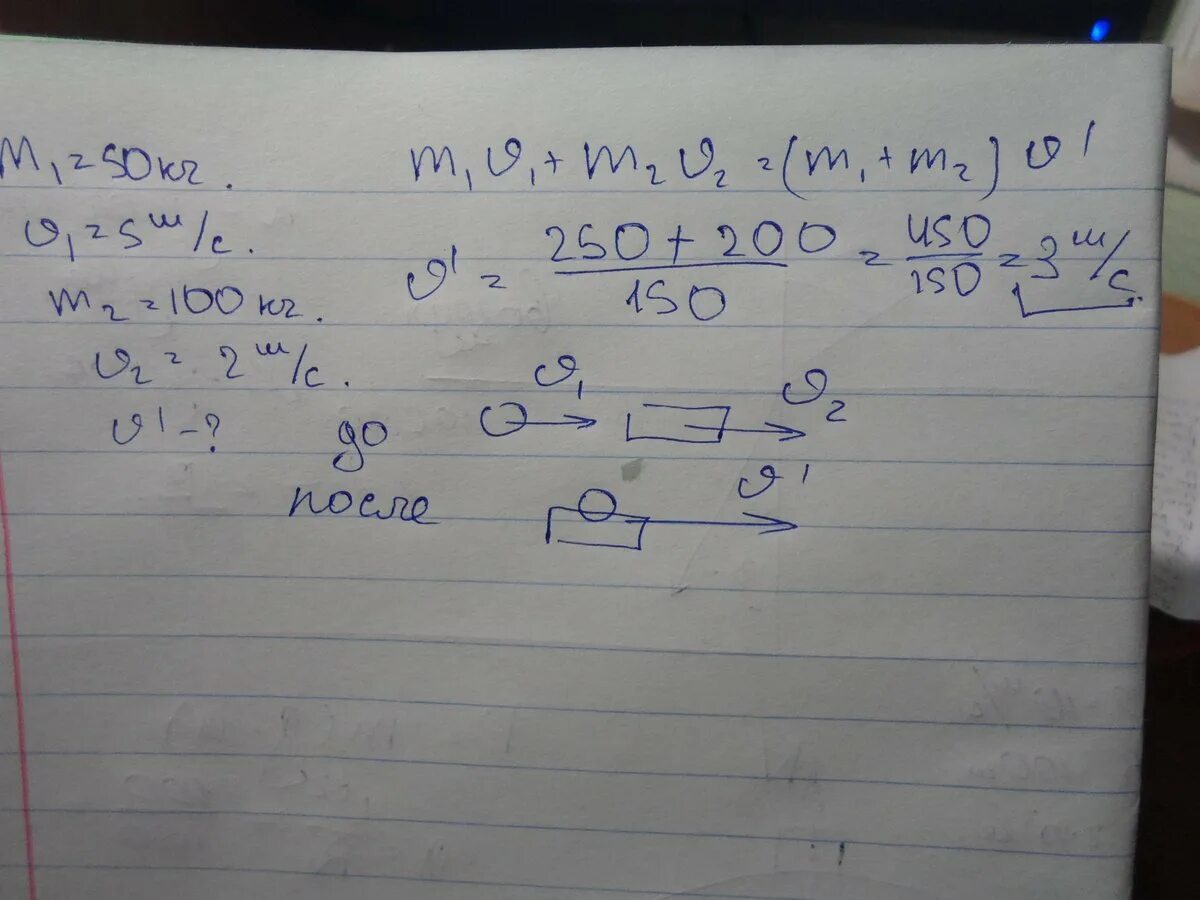 m₁ = 50 кг.
υ₁ = 5 м/с.
m₂ = 100 кг.
υ₂ = 2 м/с.
υ' - ?
m₁υ₁ + m₂υ₂ = (m₁ + m₂) υ'
υ' = (250 + 200)/150 = 450/150 = 3 м/с.
υ₁ υ₂
до
υ'
после